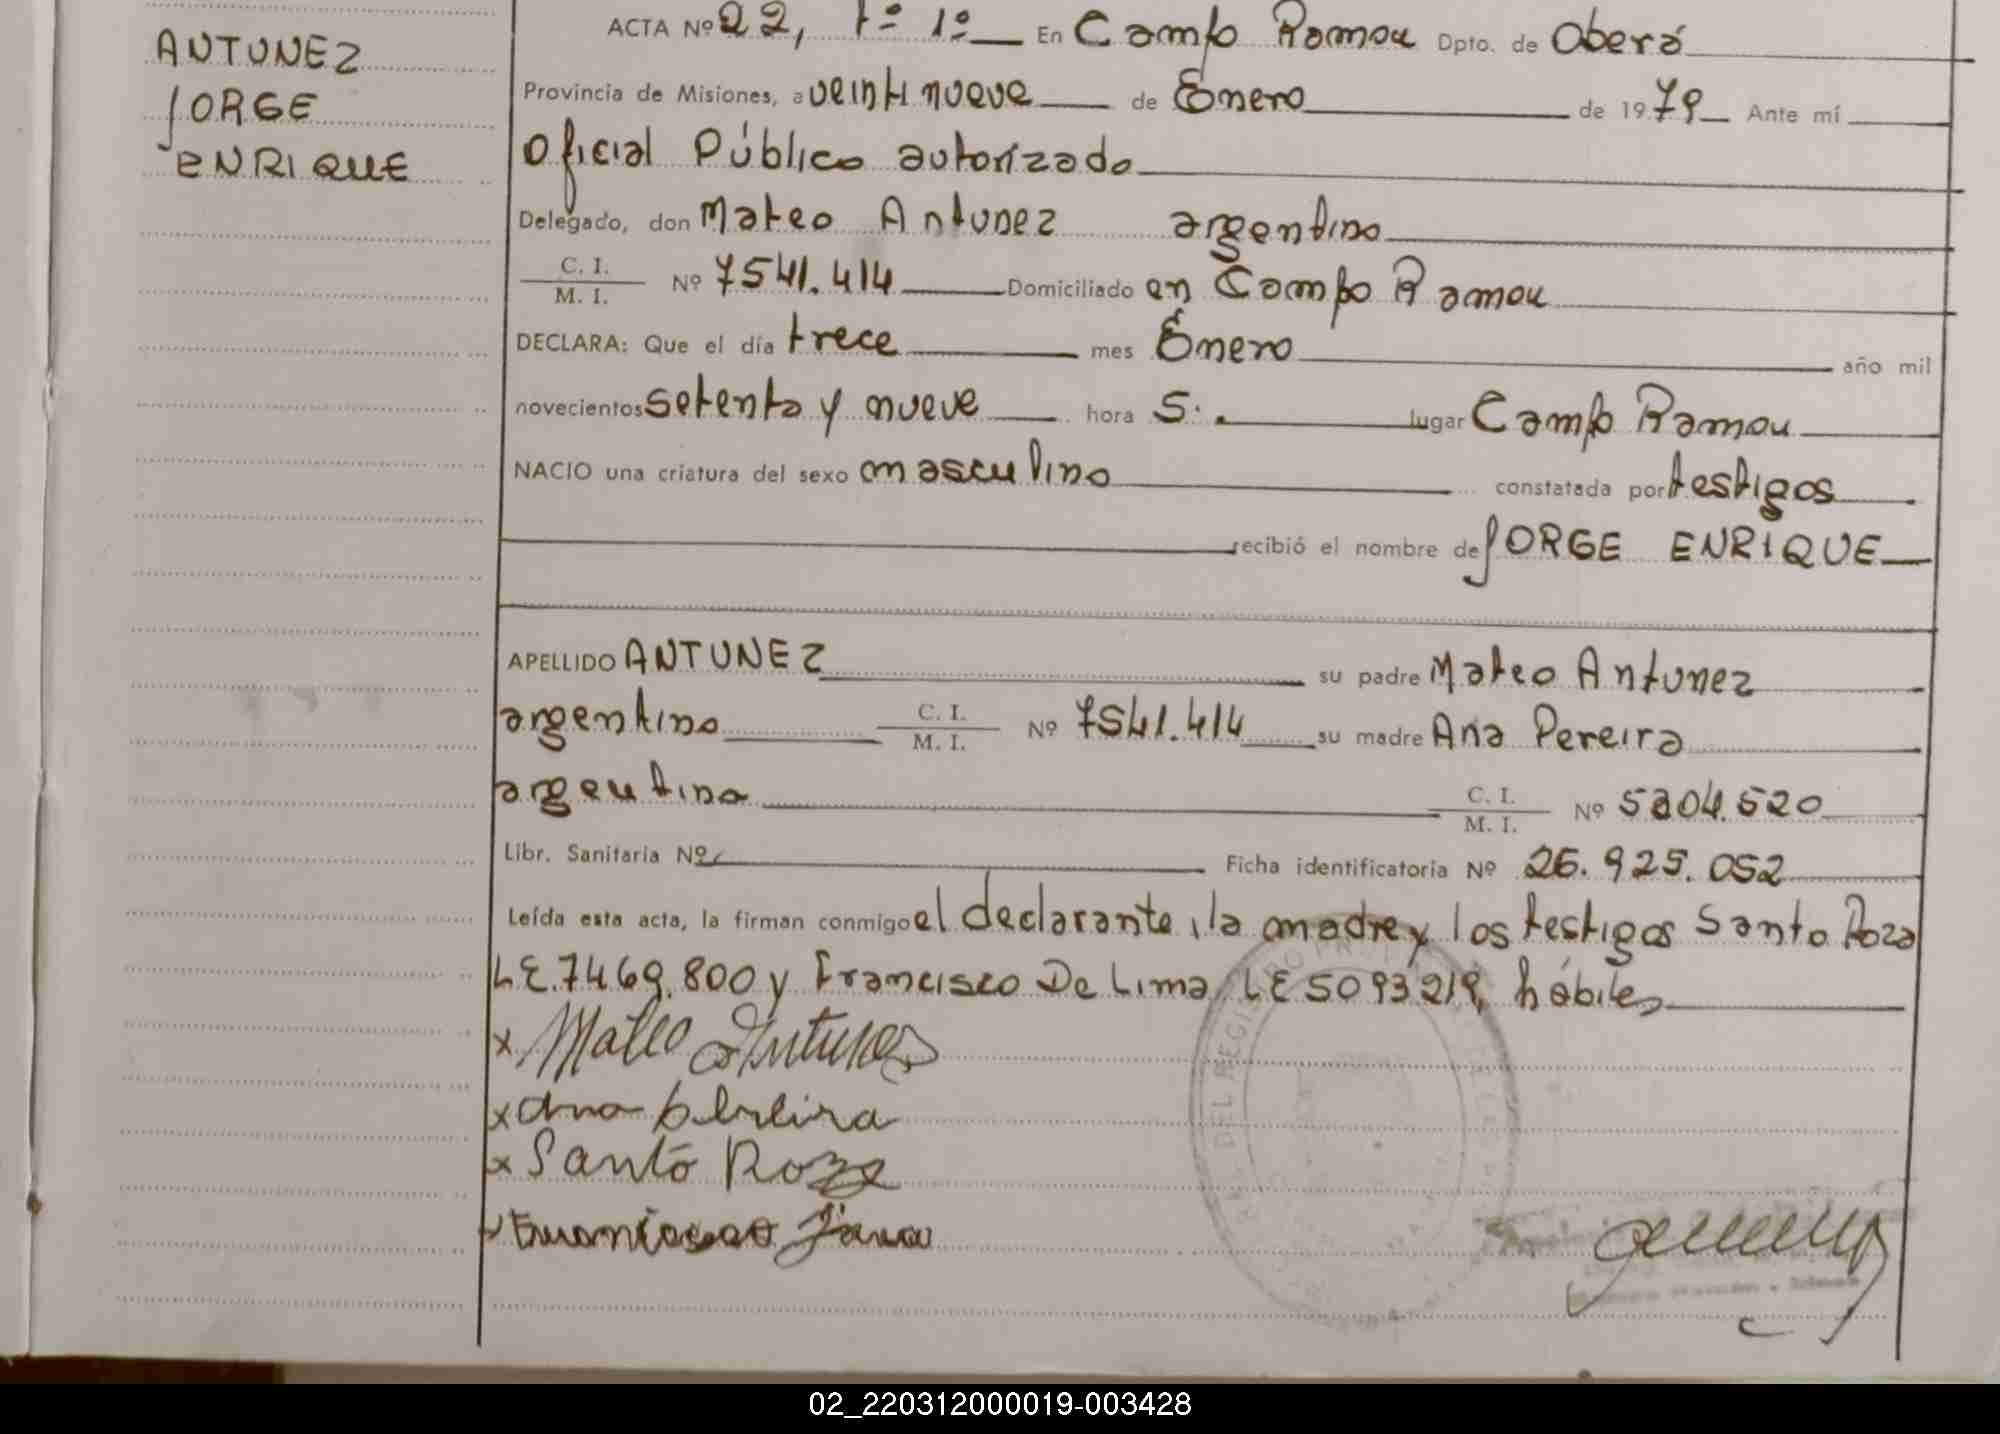 ANTUNEZ
JORGE
ENRIQUE
ACTA Nº 22, tº 1º En Campo Ramon Dpto. de Oberá
Provincia de Misiones, a veinti nueve de Enero de 1979 Ante mí
Oficial Público autorizado
Delegado, don Mateo Antunez argentino
C. I.
M. I. Nº 7541.414 Domiciliado en Campo Ramon
DECLARA: Que el día trece mes Enero año mil
novecientos setenta y nueve hora 5. lugar Campo Ramon
NACIO una criatura del sexo masculino constatada por testigos
recibió el nombre de JORGE ENRIQUE
APELLIDO ANTUNEZ su padre Mateo Antunez
argentino C. I. M. I. Nº 7541.414 su madre Ana Pereira
argentina C. I. M. I. Nº 5204.520
Libr. Sanitaria Nº Ficha identificatoria Nº 26.925.052
Leída esta acta, la firman conmigo el declarante, la madre y los testigos Santo Roza
LE.7469.800 y Francisco De Lima LE 5093219, hábiles
x Mateo Antunes
x Ana Pereira
x Santo Roza
DEL REGISTRO
02_220312000019-003428